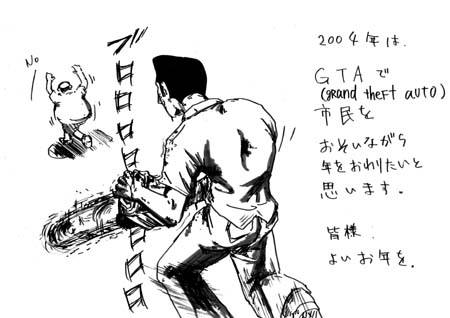 2004年は、
GTAで
(grand theft auto)
市民を
おそいながら
年をおわりたいと
思います。
皆様、
よいお年を。
No
ブロロロロロロロロロ